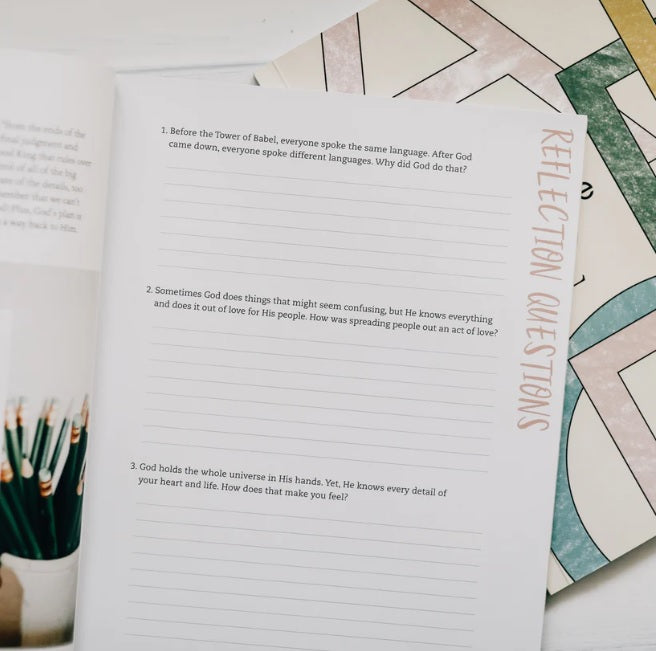 "from the ends of the
final judgment and
good King that rules over
of all of the big
of the details, too
remember that we can't
Plus, God's plan is
a way back to Him.
1. Before the Tower of Babel, everyone spoke the same language. After God
came down, everyone spoke different languages. Why did God do that?
2. Sometimes God does things that might seem confusing, but He knows everything
and does it out of love for His people. How was spreading people out an act of love?
3. God holds the whole universe in His hands. Yet, He knows every detail of
your heart and life. How does that make you feel?
REFLECTION QUESTIONS
e